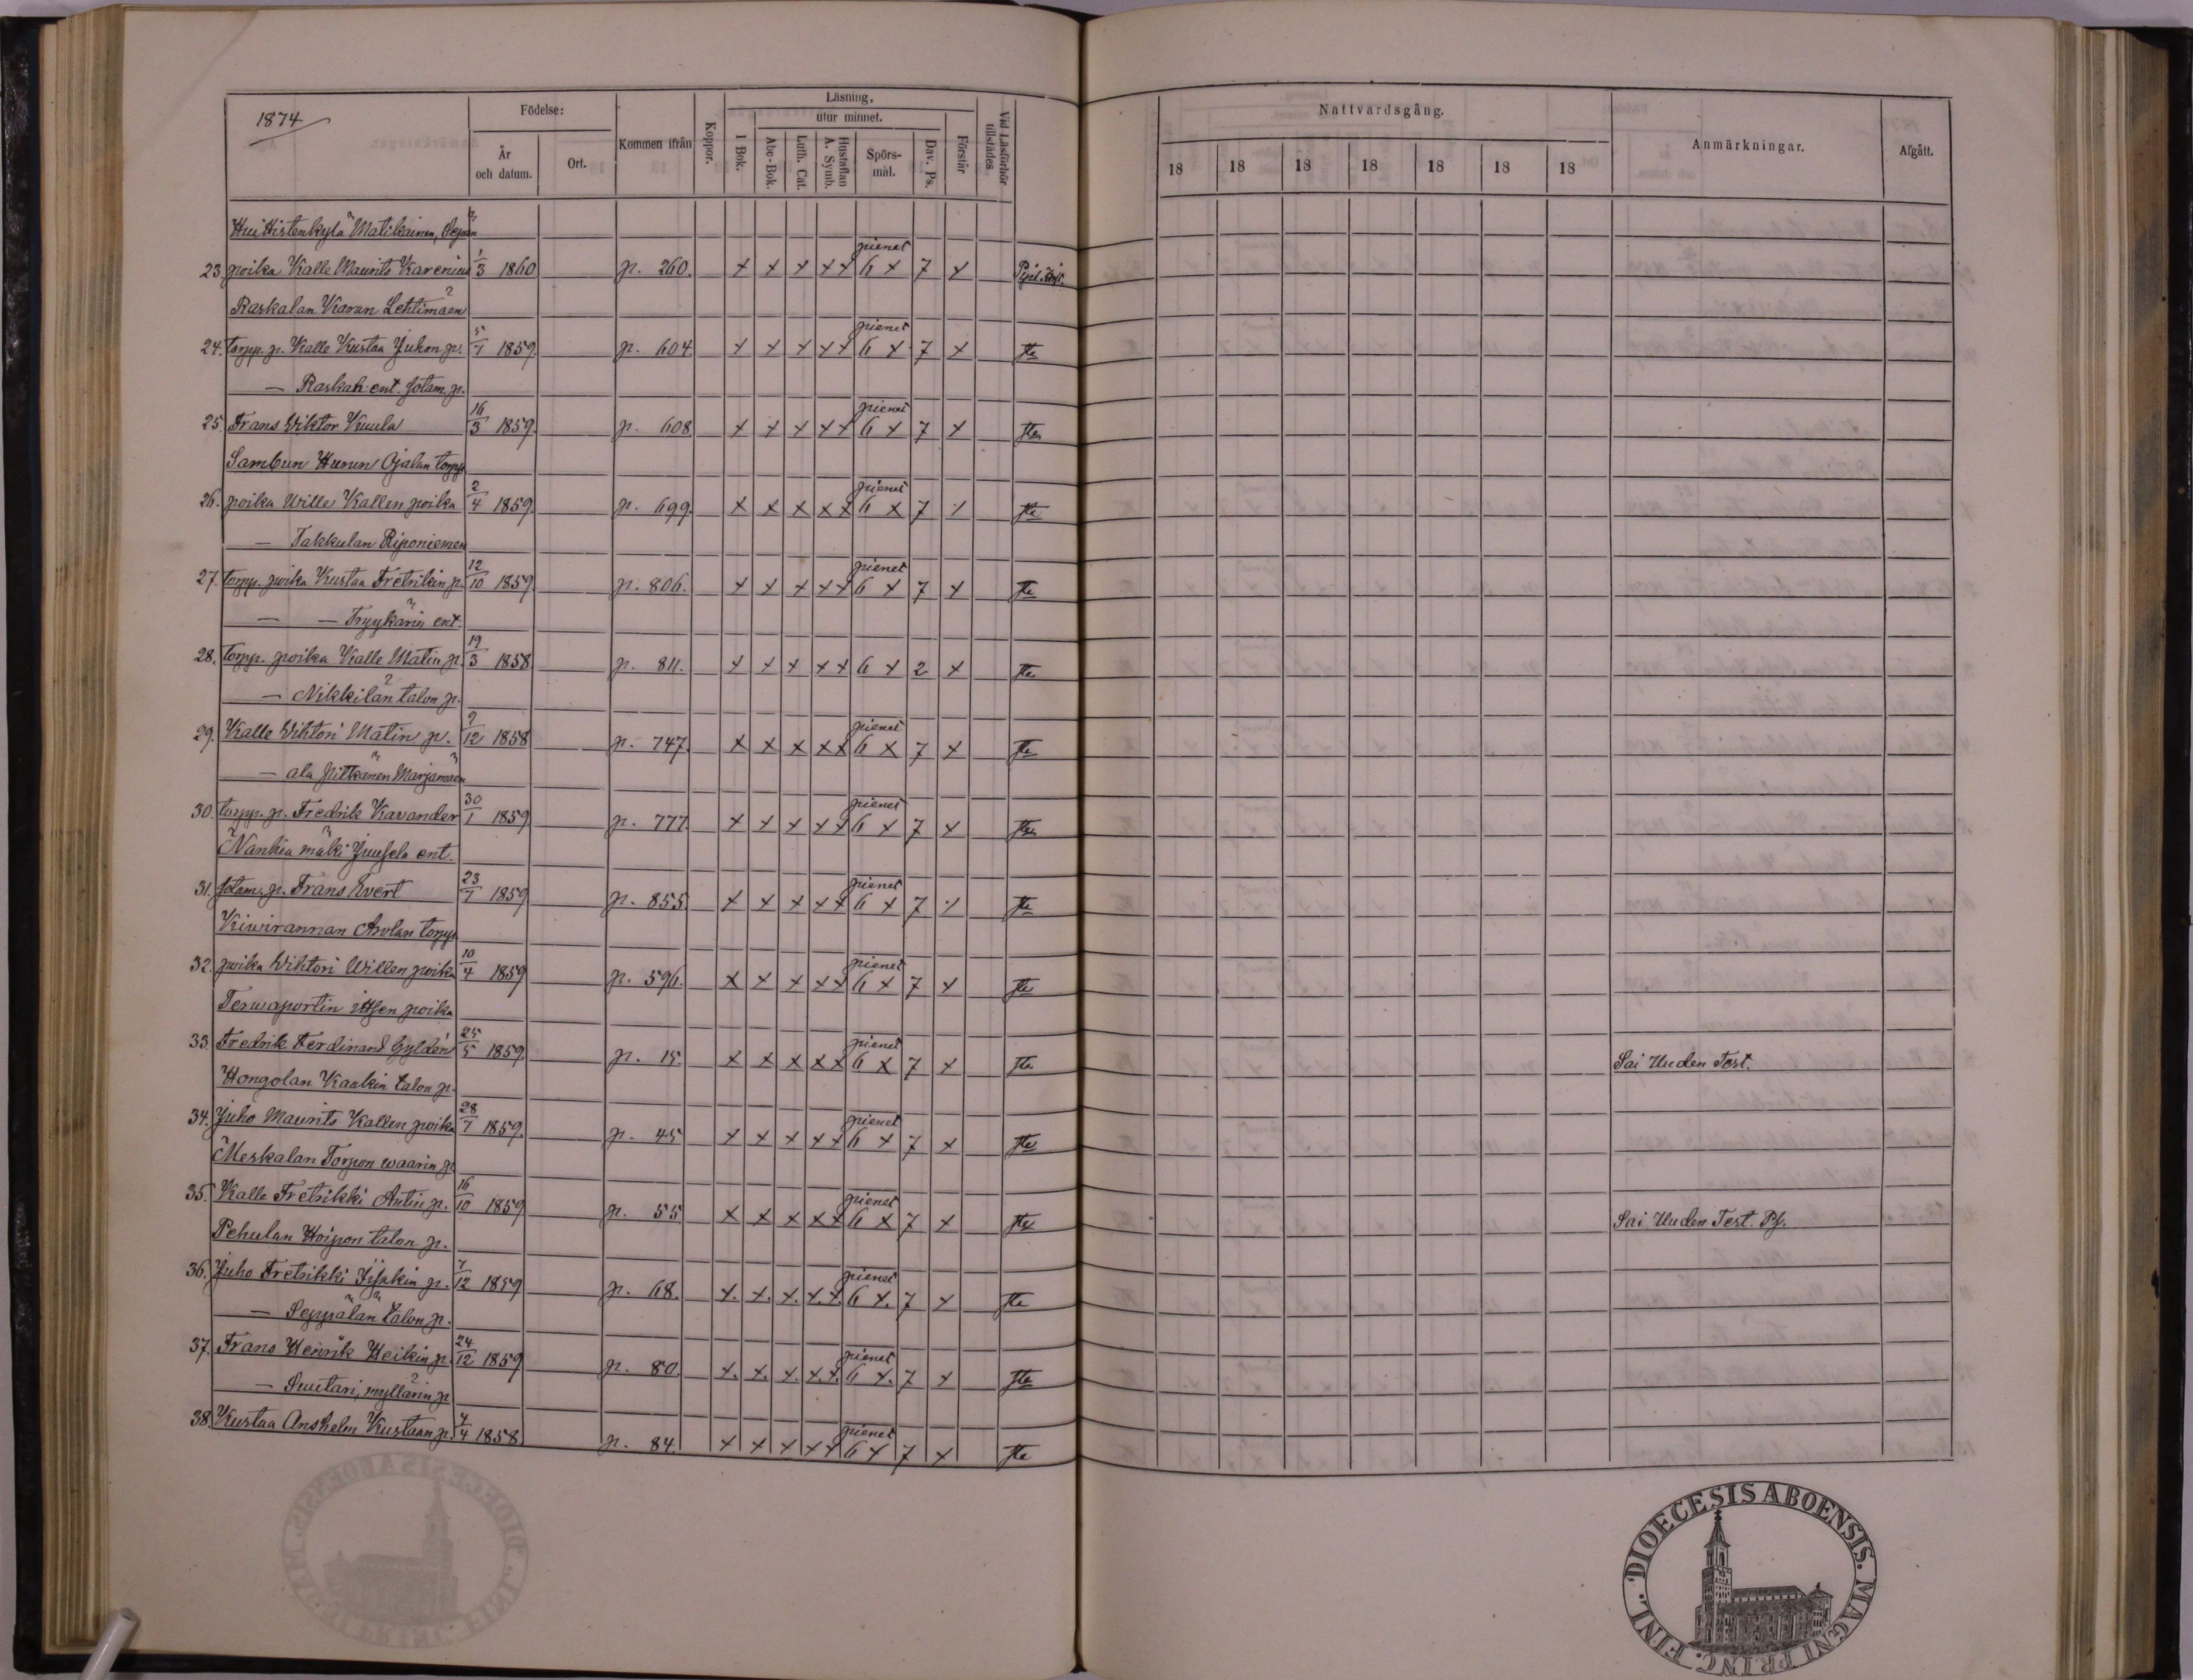 1874
Födelse:
År
och datum.
Ort.
Kommen ifrån
Koppor.
Läsning,
utur minnet.
I Bok.
Abc-Bok.
Luth. Cat.
Hustaflan
A. Symb.
Spörs-
mål.
Dav. Ps.
Förstår
Vid Läsförhör
tillstädes
Nattvardsgång.
18 18 18 18 18 18 18
Anmärkningar.
Afgått.
Huittistenkylä Matikainen,
23. poika Kalle Maurits Karenius 1/3 1860 p. 260. x x x x x pienet 6 x 7 x
Raskalan Karun Lehtimäen
24. torpp. p. Kalle Kustaa Juhon p. 5/7 1859. p. 604. x x x x x pienet 6 x 7 x
— Raskal. ent. sotam. p.
25. Frans Viktor Kuula 16/3 1859. p. 608. x x x x x pienet 6 x 7 x
Sambun Hurun Ojalan torpp.
26. poika Wille Kallen poika 2/4 1859. p. 699. x x x x x pienet 6 x 7 /
— Takkulan Riponiemen
27. torpp. poika Kustaa Fretrikin p. 12/10 1859. p. 806. x x x x x pienet 6 x 7 x
— — Fryykärin ent.
28. torpp. poika Kalle Matin p. 19/3 1858. p. 811. x x x x x 6 x 2 x
— Nikkilän talon p.
29. Kalle Wihtori Matin p. 9/12 1858 p. 747. x x x x x pienet 6 x 7 x
— ala Pitkänen Marjamäen
30. torpp. p. Fredrik Kavander 30/1 1859 p. 777. x x x x x pienet 6 x 7 x
Nanhia mäki Juusela ent.
31. sotam. p. Frans Evert 23/7 1859 p. 855. x x x x x pienet 6 x 7 /
Kiwirannan Arolan torpp.
32. poika Wihtori Willen poika 10/4 1859 p. 596. x x x x x pienet 6 x 7 x
Terwaportin itsen poika
33. Fredrik Ferdinand Gyldén 25/5 1859. p. 15. x x x x x pienet 6 x 7 x Sai Uuden Test.
Hongolan Kaakin talon p.
34. Juho Maurits Kallen poika 28/7 1859. p. 45 x x x x x pienet 6 x 7 x
Meskalan Torpon waarin p.
35. Kalle Fretrikki Antin p. 16/10 1859 p. 55. x x x x x pienet 6 x 7 x Sai Uuden Test. Ps.
Pehulan Hoipon talon p.
36. Juho Fretrikki Iisakin p. 7/12 1859 p. 68. x. x. x. x. x. pienet 6 x. 7 x
— Seppälän talon p.
37. Frans Henrik Heikin p. 24/12 1859 p. 80. x. x. x. x. x. pienet 6 x. 7 x
— Suutari, myllärin p.
38. Kustaa Anshelm Kustaan p. 7/4 1858 p. 84. x x x x x pienet 6 x 7 x
DIOECESIS ABOENSIS. MAGNI PRINC. FINL.